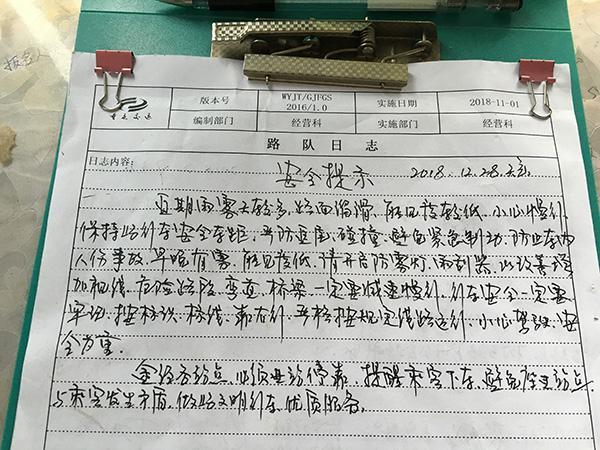 重庆交运
版本号 WYJT/GJFGS 2016/1.0 实施日期 2018-11-01
编制部门 经营科 实施部门 经营科
路队日志
日志内容: 安全提示 2018.12.28.
近期雨雾天较多,路面湿滑,能见度较低,小心慢行
保持好行车安全车距,严防追尾,碰撞,避免紧急制动,防止车内
人伤事故,早晚有雾,能见度低,请开启防雾灯,雨刮器,以改善增
加视线,危险路段,弯道,桥梁一定要减速慢行,行车安全一定要
牢记,按标识,标线,靠右行,严格按规定线路运行,小心驾驶,安
全方案。
途经各站点,必须要站停靠,提醒乘客下车,避免
与乘客发生矛盾,做好文明行车,优质服务。